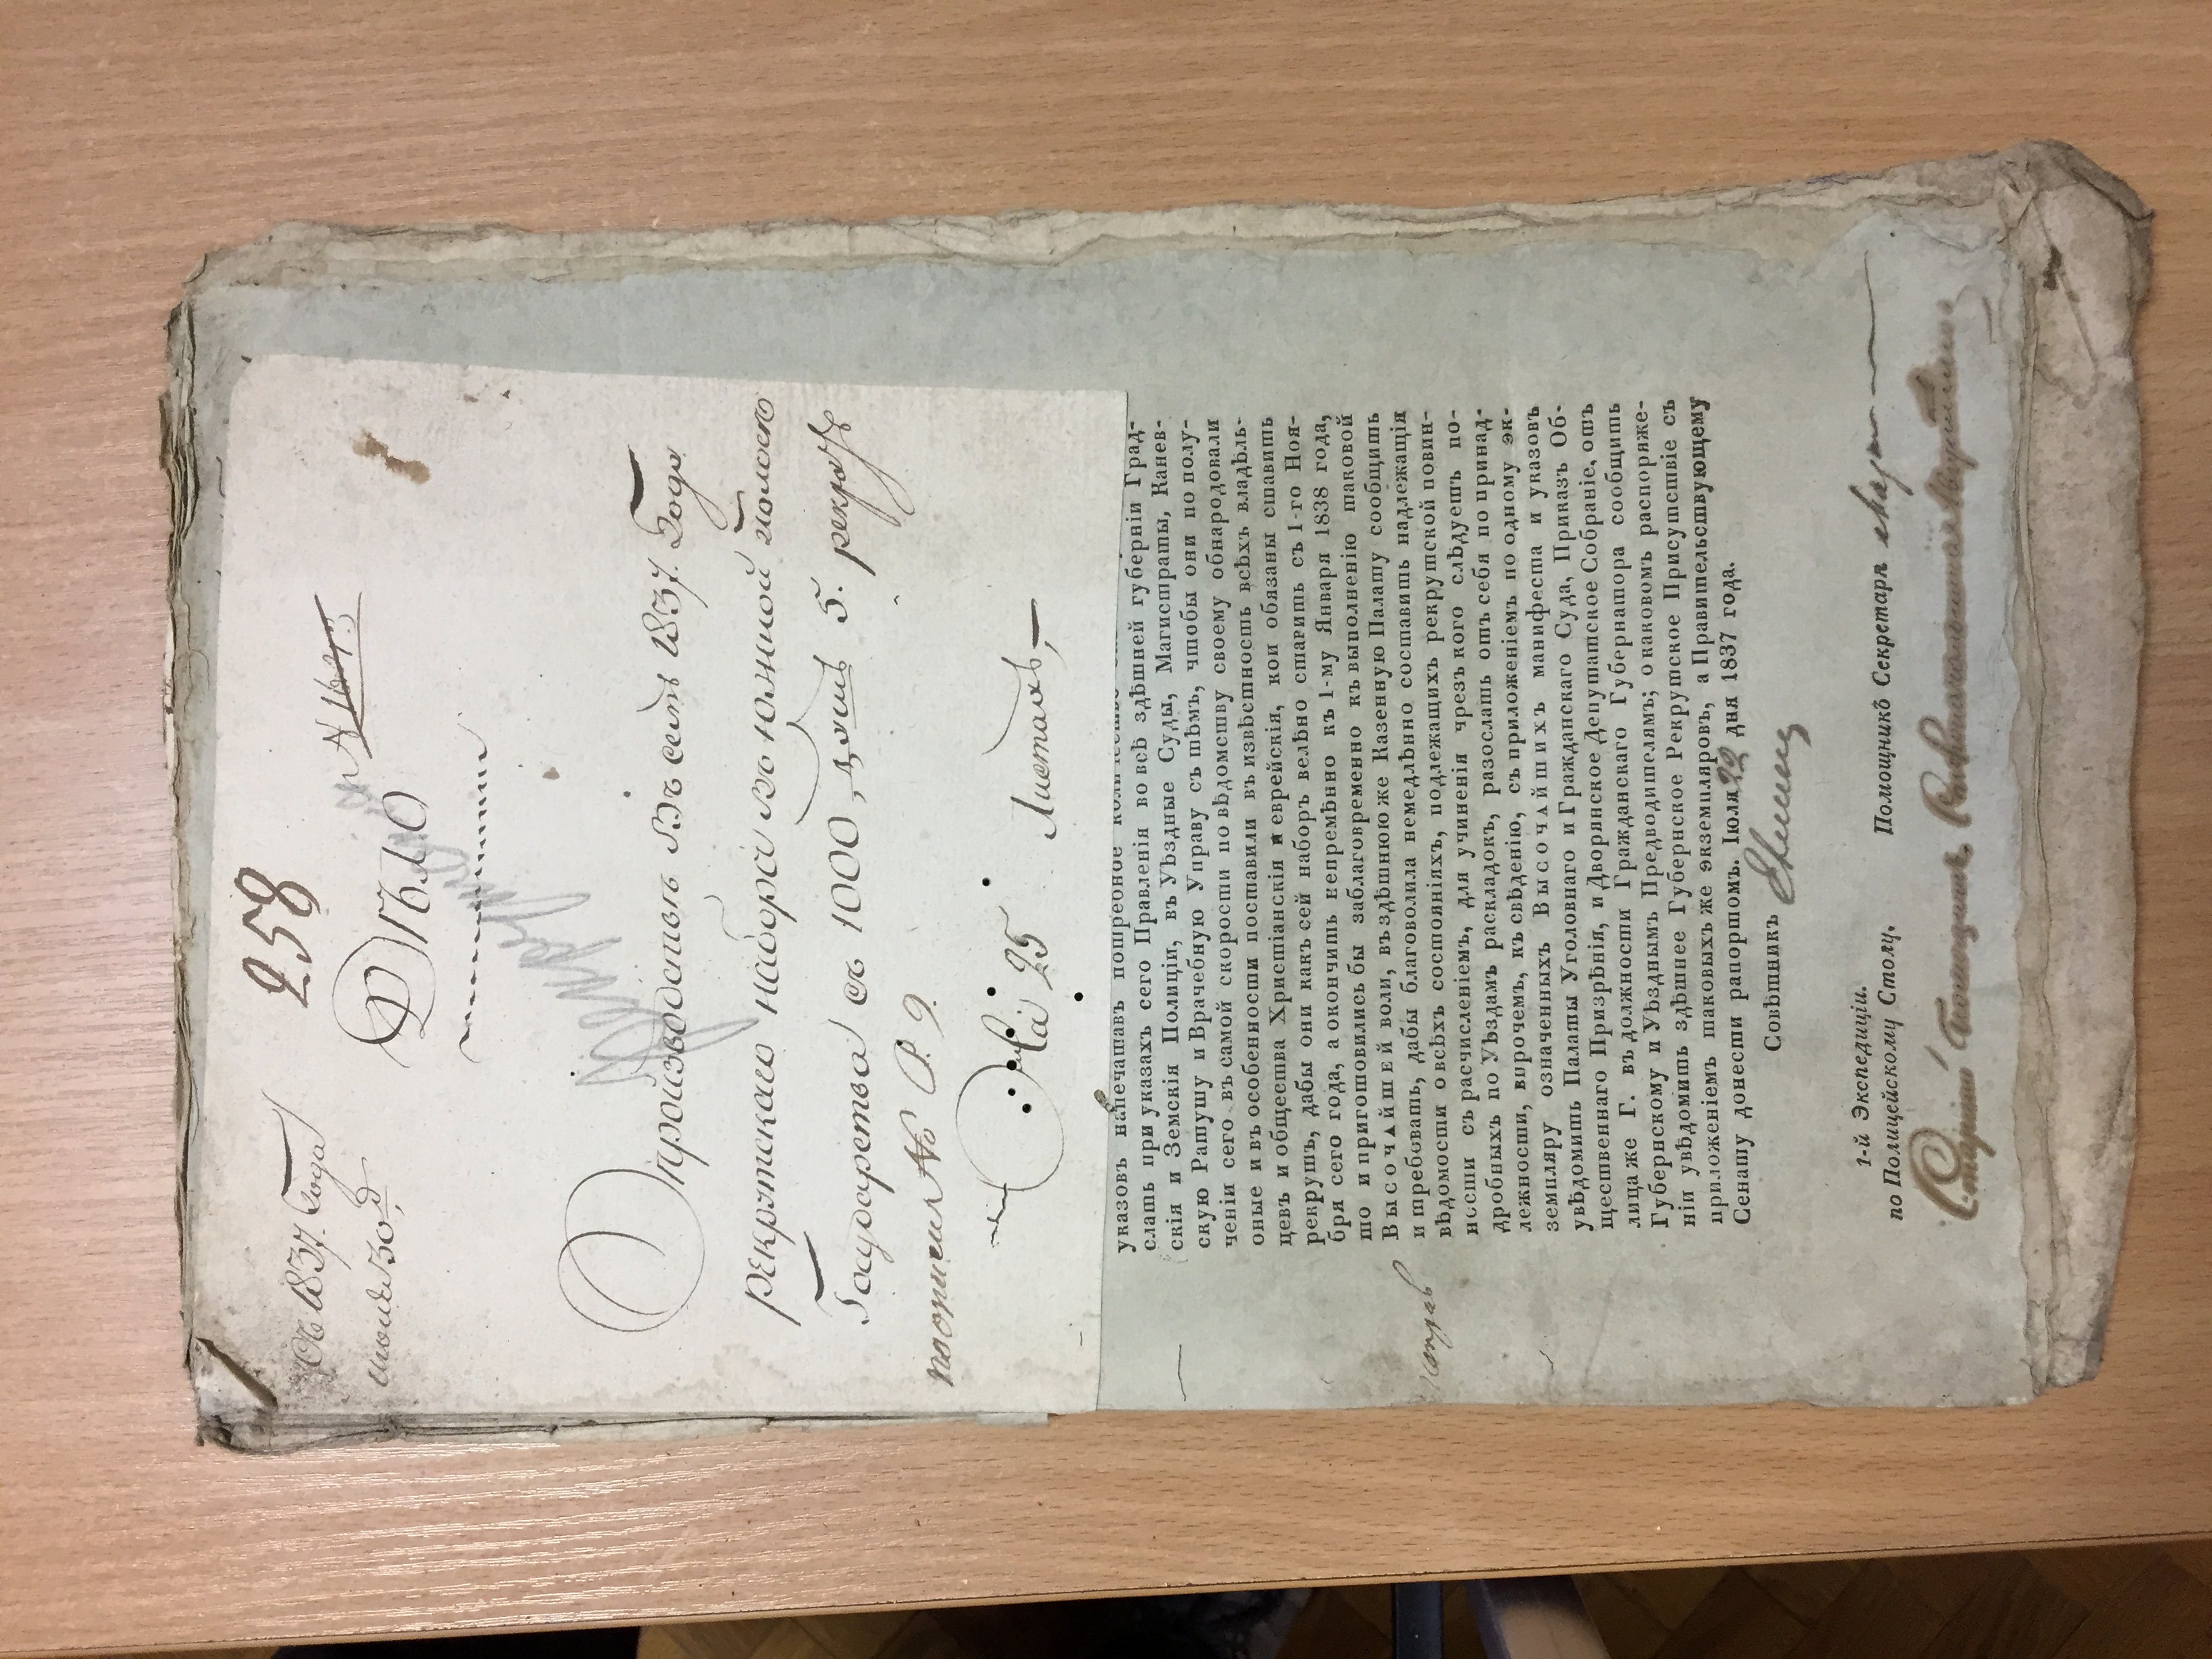 258
Съ 1837. Года
июля 30 д.
№
Дѣло
О производствѣ въ семъ 1837. Году
рекрутскаго набора во южной полосѣ
Государства съ 1000, душъ 5. рекрутъ
по описи № 9.
На 25 Листахъ,
указовъ напечатавъ потребное
слать при указахъ сего Правленія во всѣ здѣшней губерніи Град-
скія и Земскія Полиціи, въ Уѣздные Суды, Магистраты, Канев-
скую Ратушу и Врачебную Управу съ тѣмъ, чтобы они по полу-
ченіи сего въ самой скорости по вѣдомству своему обнародовали
оные и въ особенности поставили въ извѣстность всѣхъ владѣль-
цевъ и общества Христіанскія и еврейскія, кои обязаны ставить
рекрутъ, дабы они какъ сей наборъ велѣно старить съ 1-го Ноя-
бря сего года, а окончить непремѣнно къ 1-му Января 1838 года,
то и приготовились бы заблаговременно къ выполненію таковой
Высочайшей воли, въ здѣшнюю же Казенную Палату сообщить
и требовать, дабы благоволила немедлѣнно составить надлежащія
вѣдомости о всѣхъ состояніяхъ, подлежащихъ рекрутской повин-
ности съ расчисленіемъ, для учиненія чрезъ кого слѣдуетъ по-
дробныхъ по Уѣздамъ раскладокъ, разослать отъ себя по принад-
лежности, впрочемъ, къ свѣденію, съ приложеніемъ по одному эк-
земпляру означенныхъ Высочайшихъ манифеста и указовъ
увѣдомить Палаты Уголовнаго и Гражданскаго Суда, Приказъ Об-
щественнаго Призрѣнія, и Дворянское Депутатское Собраніе, отъ
лица же Г. въ должности Гражданскаго Губернатора сообщить
Губернскому и Уѣзднымъ Предводителямъ; о каковомъ распоряже-
ніи увѣдомить здѣшнее Губернское Рекрутское Присутствіе съ
приложеніемъ таковыхъ же экземпляровъ, а Правительствующему
Сенату донести рапортомъ. Іюля 22 дня 1837 года.
Совѣтникъ
1-й Экспедиціи.
по Полицейскому Столу.
Помощникъ Секретаря